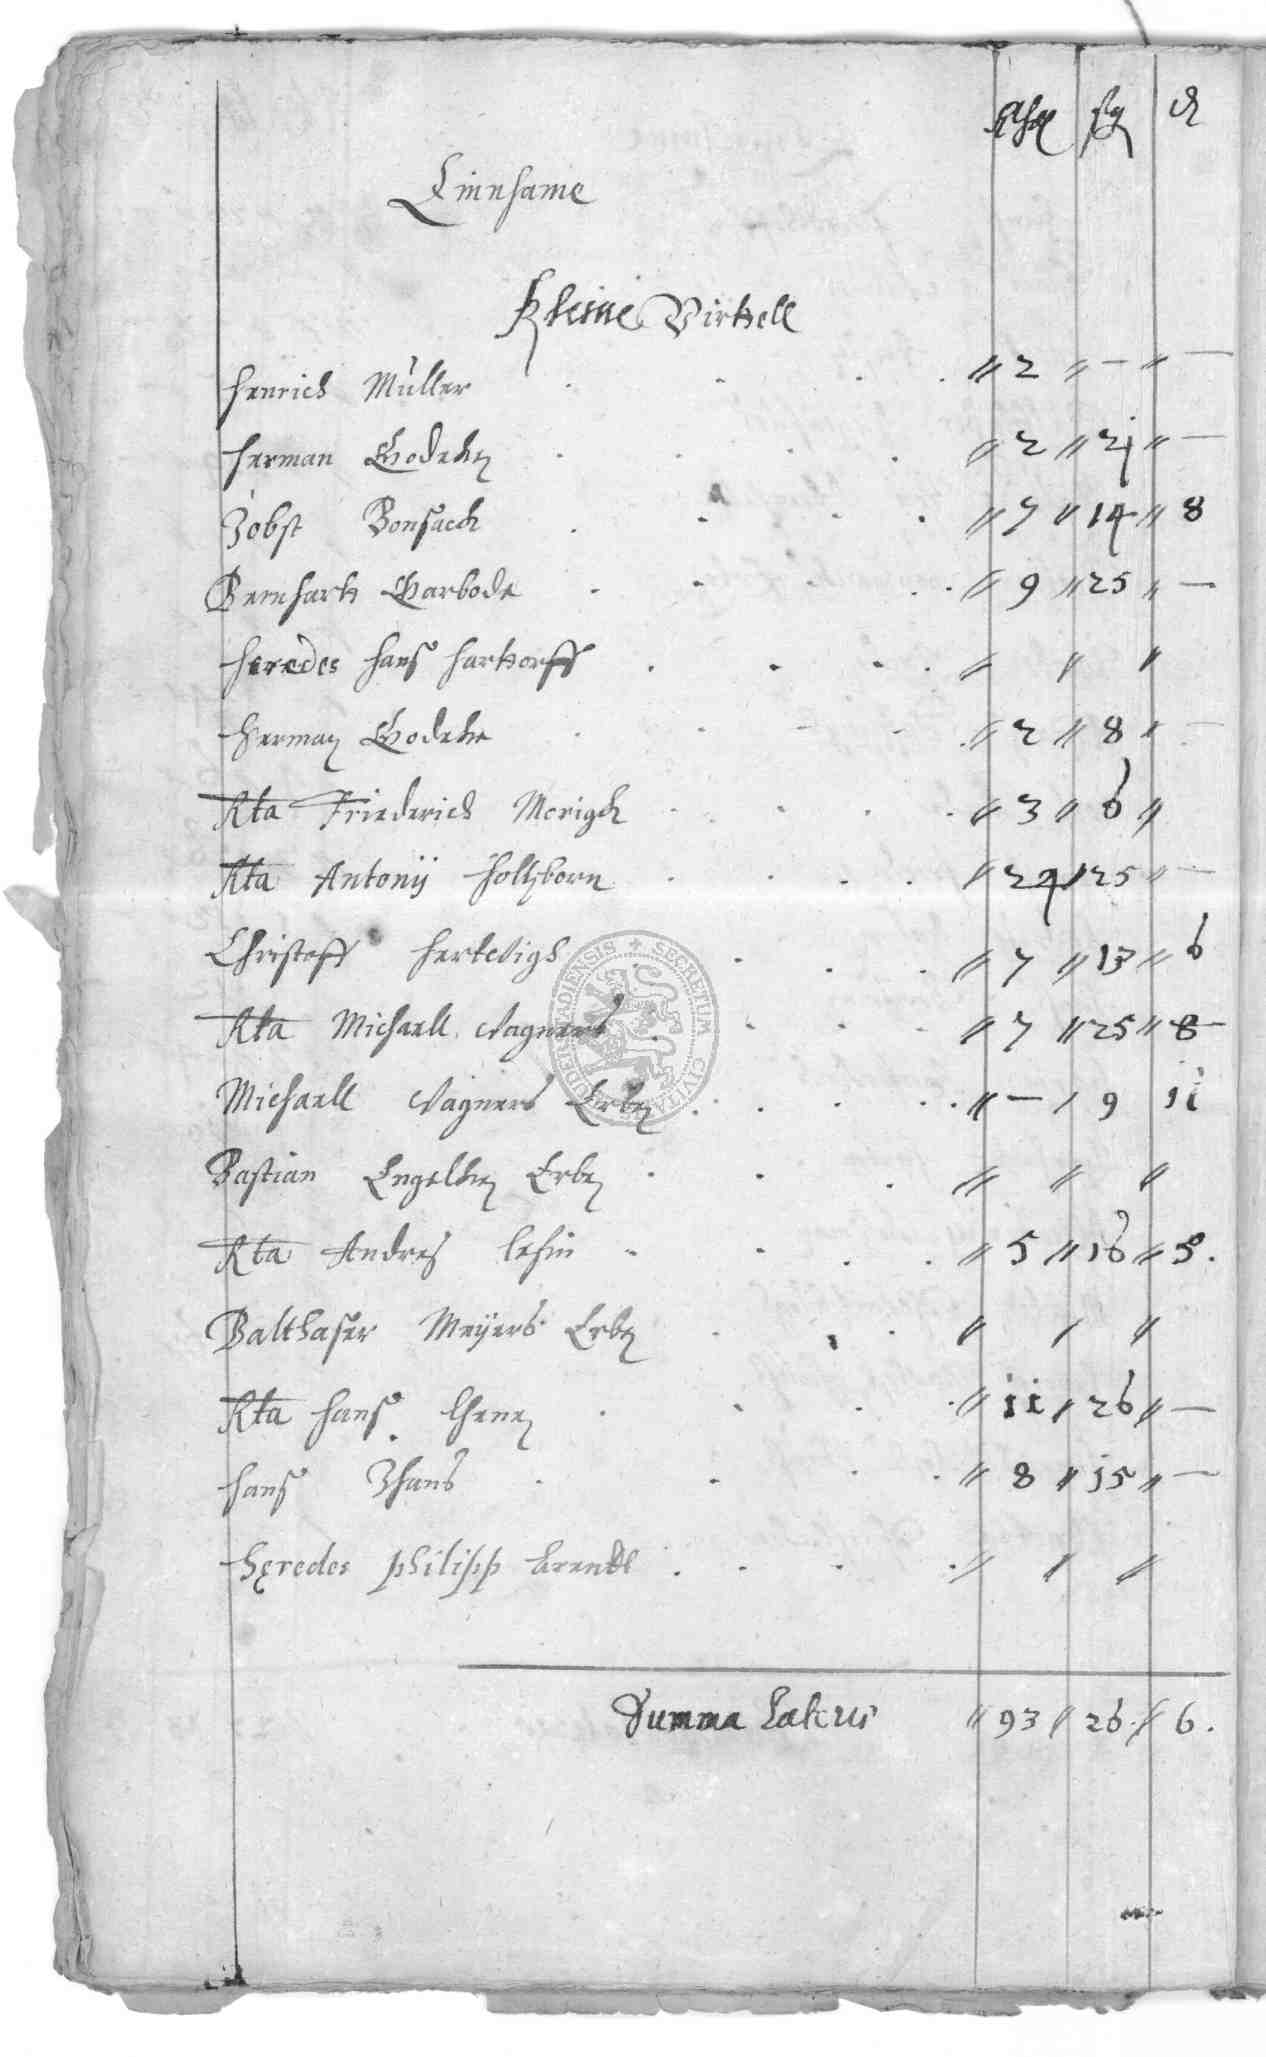 Rthlr sg d
Einnhame
Kleine Virtzell
Henrich Müller . . . . " 2 " — " —
Herman Godeken . . . . " 2 " 21 " —
Jobst Bonsack . . . . " 7 " 14 " 8
Bernhartt Garbode . . . . " 9 " 25 " —
Heredes Hanß Hartzorff . . . . " " "
Herman Godeke . . . . " 2 " 8 " —
Rta Friederich Merigk . . . . " 3 " 6 "
Rta Antonij Holtzborn . . . . " 24 " 25 " —
Christoff Hertwigh . . . . " 7 " 13 " 6
Rta Michaell Wagners . . . . " 7 " 25 " 8
Michaell Wagners Erben . . . . " — " 9 11
Bastian Engelken Erben . . . . " " "
Rta Andres . . . . " 5 " 16 " 5.
Balthaser Meijers Erben . . . . " " "
Rta Hanß . . . . " 11 " 26 " —
Hanß . . . . " 8 " 15 " —
Heredes Philipp Arendt . . . . " " "
Summa Lateris " 93 " 26 " 6.
SECRETUM CIVITA DUDERSTADIENSIS